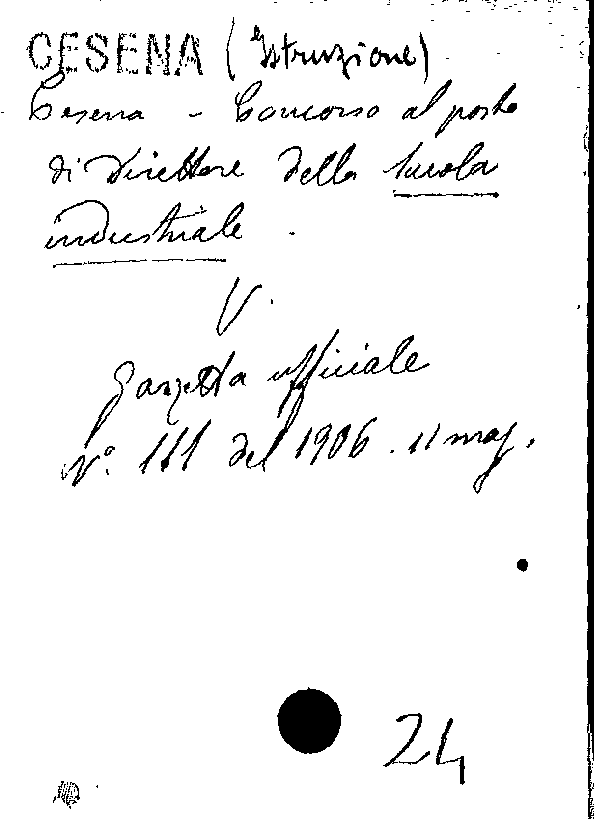 CESENA (Istruzione)
Cesena - Concorso al posto
di Direttore della Scuola
industriale.
V.
Gazzetta ufficiale
N.° 111 del 1906. 11 mag.
24